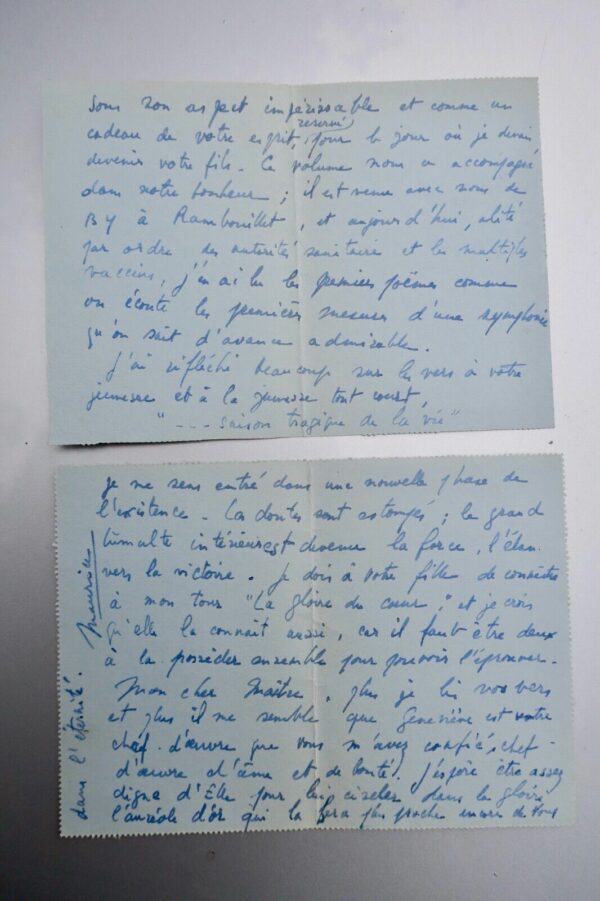 sous son aspect impérissable et comme un
cadeau de votre esprit, réservé pour le jour où je devais
devenir votre fils. Ce volume nous a accompagné
dans notre bonheur ; il est venu avec nous de
By à Rambouillet, et aujourd'hui, alité
par ordre des autorités sanitaires et les multiples
vaccins, j'en ai lu les premiers poèmes comme
on écoute les premières mesures d'une symphonie
qu'on sait d'avance admirable.
J'ai réfléchi beaucoup sur les vers à votre
jeunesse et à la jeunesse tout court,
"--- saison tragique de la vie"
je me sens entré dans une nouvelle phase de
l'existence. Les doutes sont estompés ; le grand
tumulte intérieur est devenu la force, l'élan
vers la victoire. Je dois à votre fille de connaître
à mon tour "La gloire du cœur", et je crois
qu'elle la connait aussi, car il faut être deux
à la posséder ensemble pour pouvoir l'éprouver.
Mon cher Maître, plus je lis vos vers
et plus il me semble que Geneviève est votre
chef-d'œuvre que vous m'avez confié, chef-
d'œuvre d'âme et de bonté. J'espère être assez
digne d'Elle pour lui ciseler dans la gloire
l'auréole d'or qui la fera plus proche encore de vous
dans l'éternité. Maurice